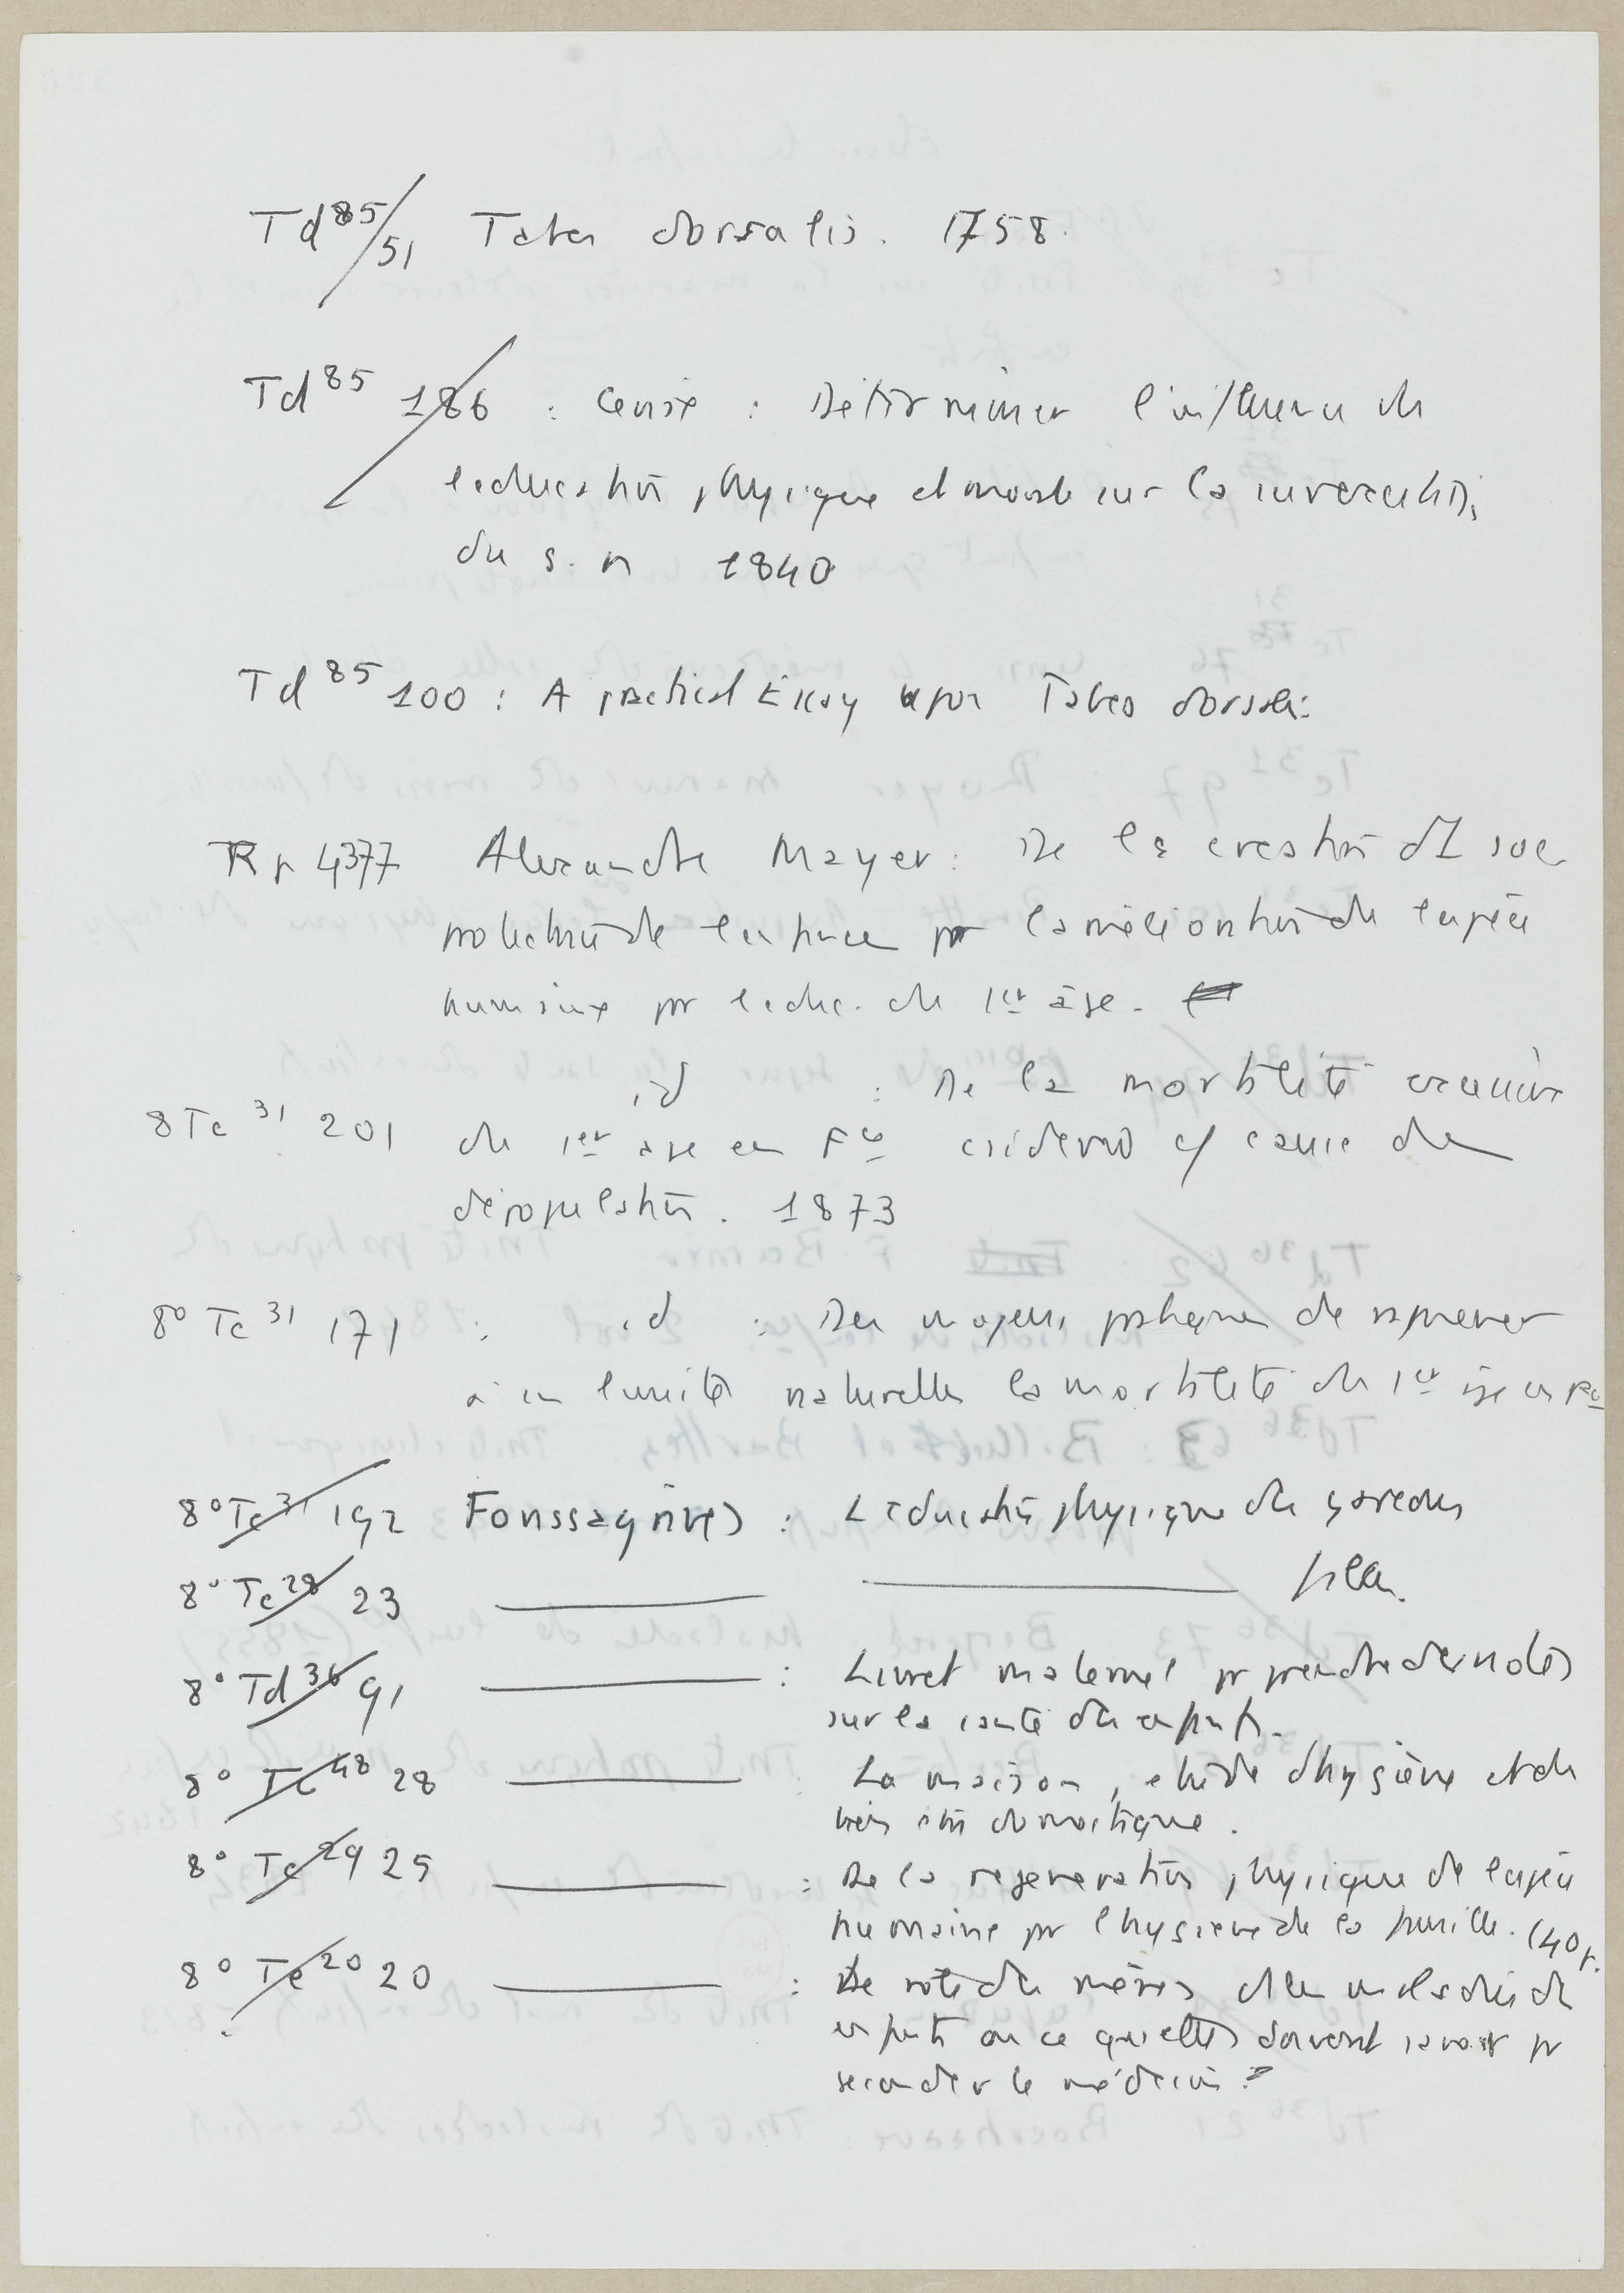 Td 85/51 Tabes dorsalis. 1758.
Td 85 186 : Cerise : Déterminer l'influence de
l'education physique et morale sur la surexcitati.
du s. n 1840
Td 85 100 : A practical Essay upon Tabes dorsali:
Rp 4377 Alexandre Mayer : De la creation d1 soc
protectrice de l'enfance pr l'amélioration de l'espèce
humaine pr l'educ. du 1er âge.
id : De la mortalité excessive
8 Tc 31 201 du 1er age en Fce considérée c/ cause de
dépopulation. 1873
8° Tc 31 171 : id : Des moyens pratiques de ramener
à ses limites naturelles la mortalité du 1er âge en Fce
8° Tc 31 192 Fonssagrives : L'éducation physique des garçons
8° Tc 28 23 filles.
8° Td 36 91 : Livret maternel pr prendre des notes
sur la santé des enfants.
8° Tc 48 28 : La maison, étude d'hygiène et de
bien être domestique.
8° Tc 29 25 : De la regeneration physique de l'espèce
humaine pr l'hygiene de la famille. (40 p.
8° Te 20 20 : Le role des mères ds les maladies des
enfants ou ce qu'elles doivent savoir pr
seconder le médecin.